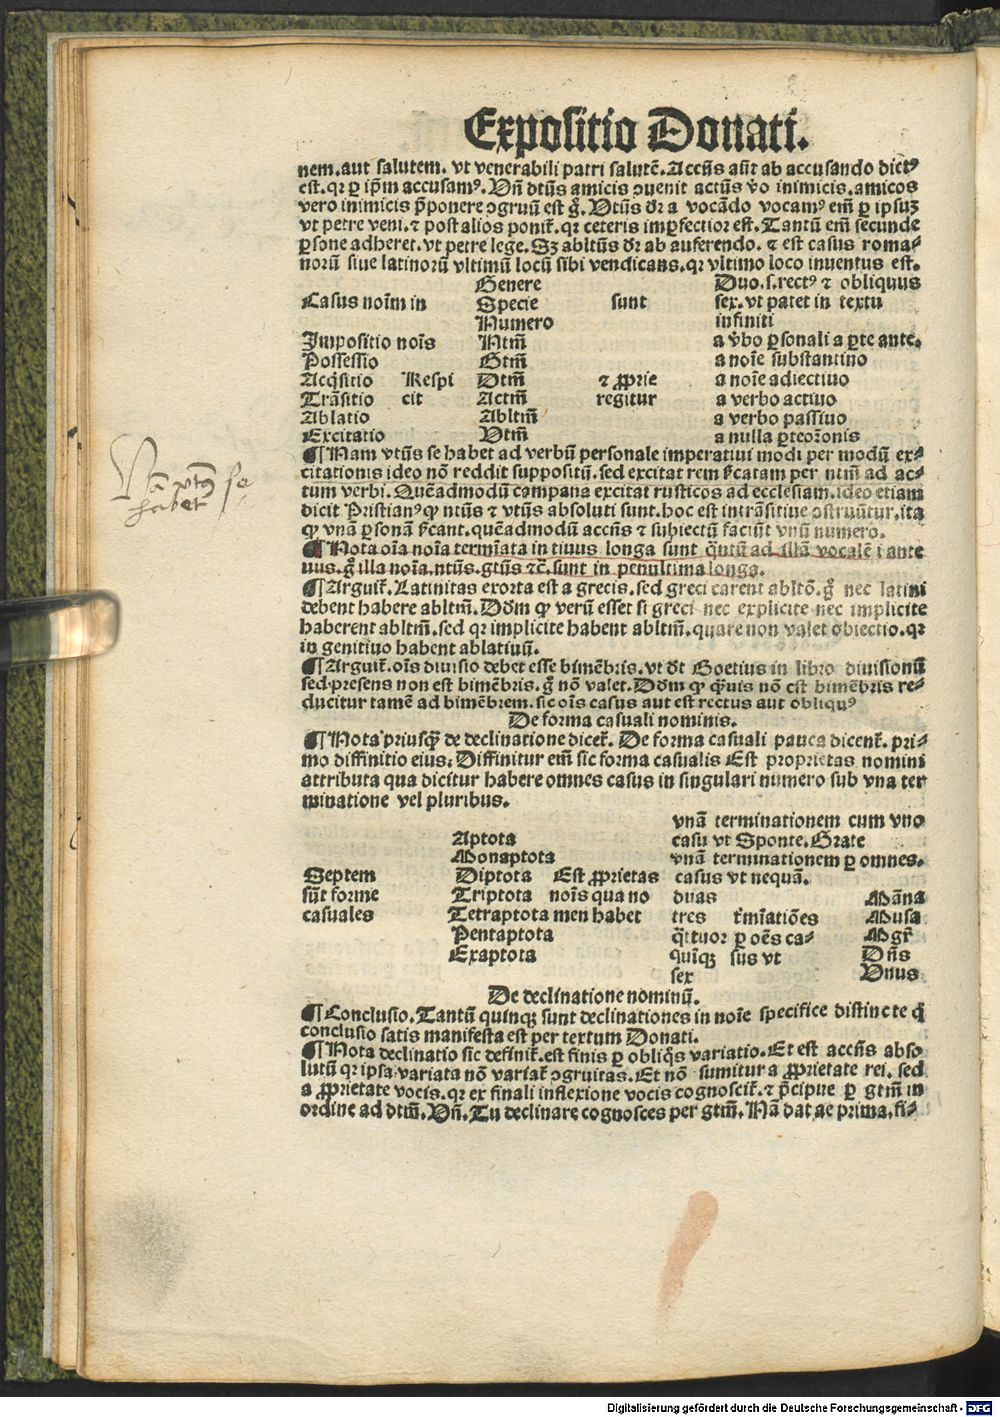 Expositio Donati.
nem. aut salutem. vt venerabili patri salutē. Accūs aūt ab accusando dictꝰ
est. qr ꝑ ip̄m accusamꝰ. Vn̄ dtūs amicis ꝯuenit actūs v̄o inimicis. amicos
vero inimicis p̄ponere ꝯgruū est g̊. Vtūs dr̄ a vocādo vocamꝰ em̄ ꝑ ipsuꝫ
vt petre veni. ⁊ post alios ponit̄. qr ceteris imꝑfectior est. Tantū em̄ secunde
ꝑsone adheret. vt petre lege. Sꝫ abltūs dr̄ ab auferendo. ⁊ est casus roma⸗
norū siue latinorū vltimū locū sibi vendicans. qr vltimo loco inuentus est.
Genere Duo. s. rectꝰ ⁊ obliquus
Casus noīm in Specie sunt sex. vt patet in textu
Numero infiniti
Impositio noīs Ntm̄ a v̄bo ꝑsonali a ꝑte ante.
Possessio Gtm̄ a noīe substantiuo
Acq̇sitio Respi Dtm̄ ⁊ ꝓprie a noīe adiectiuo
Trāsitio cit Actm̄ regitur a verbo actiuo
Ablatio Abltm̄ a verbo passiuo
Excitatio Vtm̄ a nulla ꝑte oꝛonis
¶ Nam vtūs se habet ad verbū personale imperatiui modi per modū ex⸗
citationis ideo nō reddit suppositū. sed excitat rem sc̄atam per ntm̄ ad ac⸗
tum verbi. Quēadmodū campana excitat rusticos ad ecclesiam. ideo etiam
dicit Pristianꝰ ꝙ ntūs ⁊ vtūs absoluti sunt. hoc est intrāsitiue ꝯstruūtur. ita
ꝙ vnā ꝑsonā sc̄ant. quēadmodū accūs ⁊ subiectū faciūt vnū numero.
Nā vtꝰ se
habet
¶ Nota oīa noīa termīata in tiuus longa sunt q̄tū ad illā vocalē i ante
uus. g̊ illa noīa. ntūs. gtūs ⁊c̄. sunt in penultima longa.
¶ Arguit̄. Latinitas exorta est a grecis. sed greci carent abltō. g̊ nec latini
debent habere abltm̄. Dōm ꝙ verū esset si greci nec explicite nec implicite
haberent abltm̄. sed qr implicite habent abltm̄. quare non valet obiectio. qr
in genitiuo habent ablatiuū.
¶ Arguit̄. oīs diuisio debet esse bimēbris. vt dt̄ Boetius in libro diuisionū
sed presens non est bimēbris. g̊ nō valet. Dōm ꝙ q̄uis nō est bimēbris re⸗
ducitur tamē ad bimēbrem. sic oīs casus aut est rectus aut obliquꝰ
De forma casuali nominis.
¶ Nota priusq̄ de declinatione dicet̄. De forma casuali pauca dicent̄. pri⸗
mo diffinitio eius: Diffinitur em̄ sic forma casualis Est proprietas nomini
attributa qua dicitur habere omnes casus in singulari numero sub vna ter
minatione vel pluribus.
vnā terminationem cum vno
Aptota casu vt Sponte. Grate
Monaptota vnā terminationem ꝑ omnes.
Septem Diptota Est ꝓprietas casus vt nequā.
sūt forme Triptota noīs qua no duas Māna
casuales Tetraptota men habet tres t̄mīatiōes Musa
Pentaptota q̄ttuor ꝑ oēs ca⸗ Mgr̄
Exaptota quīqꝫ sus vt Dn̄s
sex Vnus
De declinatione nominū.
¶ Conclusio. Tantū quinqꝫ sunt declinationes in noīe specifice distincte q̄
conclusio satis manifesta est per textum Donati.
¶ Nota declinatio sic definit̄. est finis ꝑ obliq̇s variatio. Et est accn̄s abso
lutū qr ipsa variata nō variat̄ ꝯgruitas. Et nō sumitur a ꝓprietate rei. sed
a ꝓprietate vocis. qr ex finali inflexione vocis cognoscit̄. ⁊ p̄cipue ꝑ gtm̄ in
ordine ad dtm̄. Vn̄. Tu declinare cognosces per gtm̄. Nā dat ae prima. fi⸗
Digitalisierung gefördert durch die Deutsche Forschungsgemeinschaft - DFG